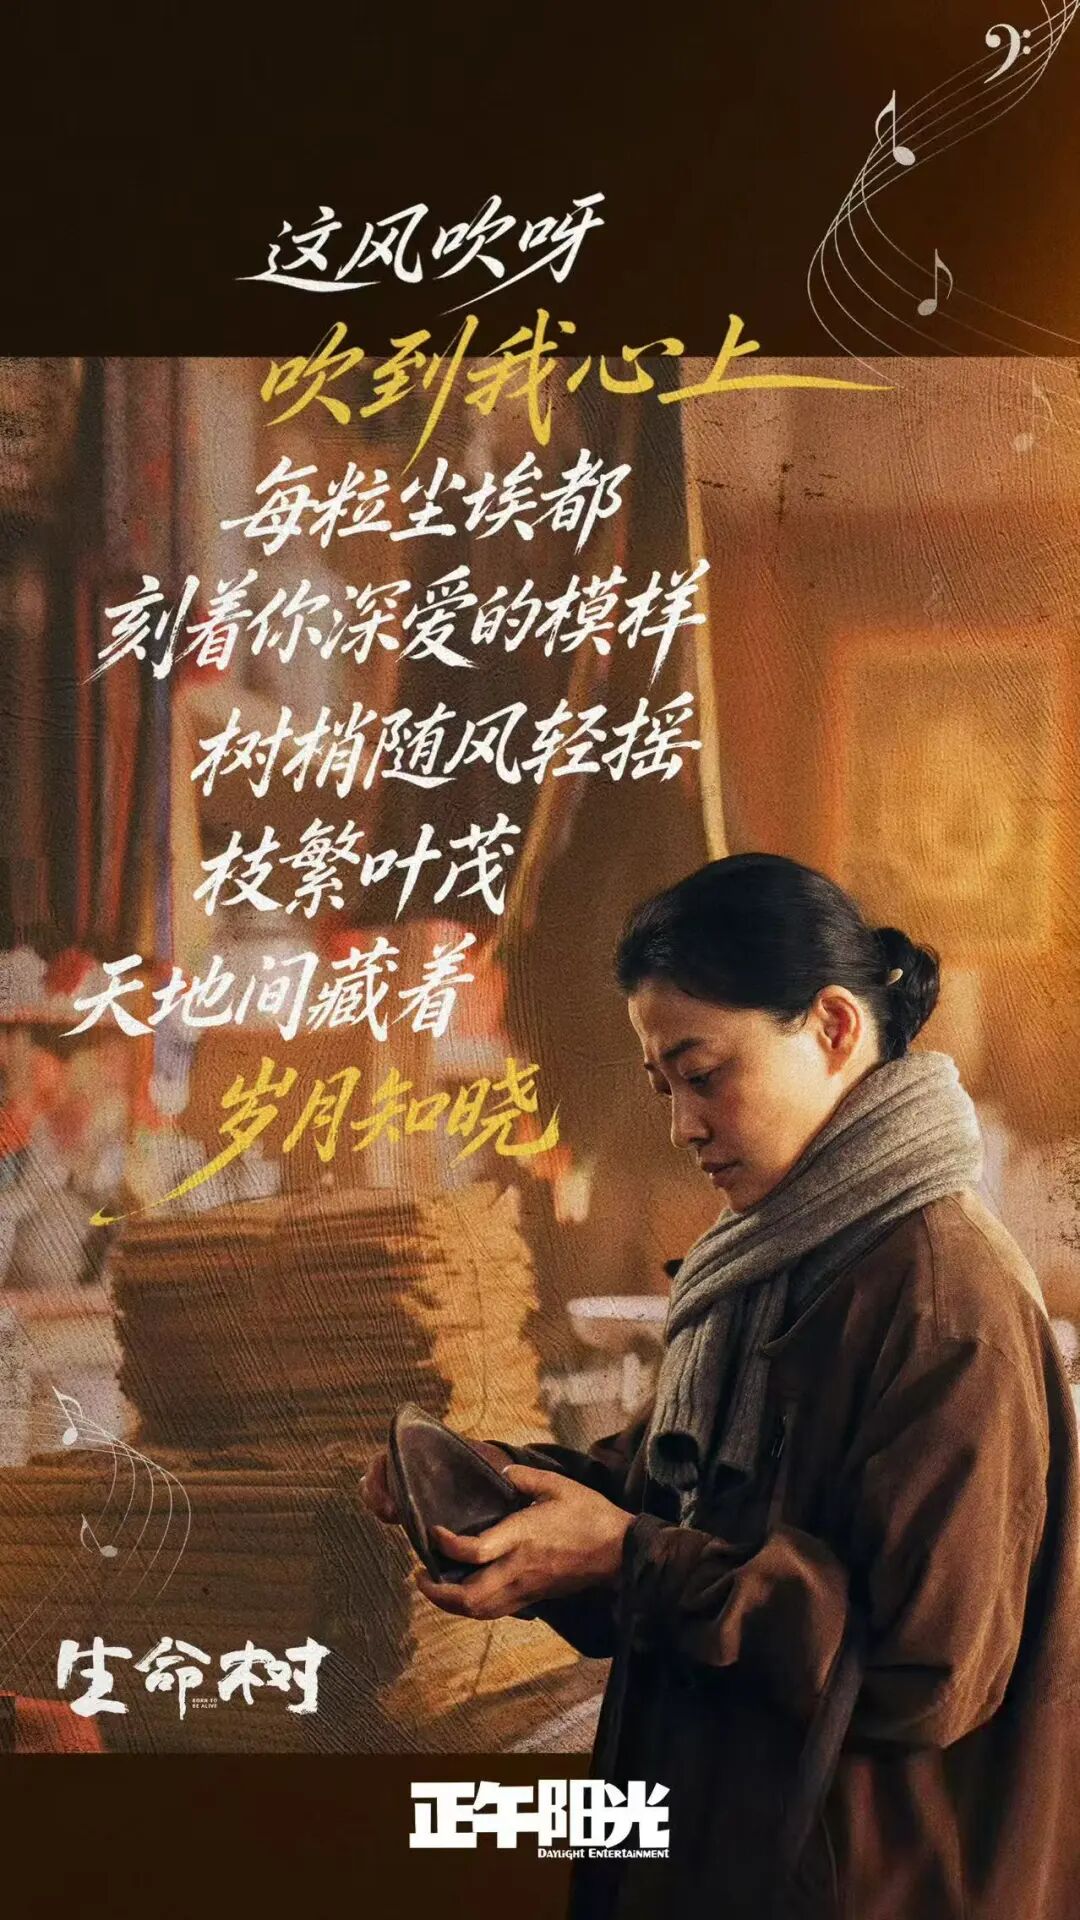 这风吹呀
吹到我心上
每粒尘埃都
刻着你深爱的模样
树梢随风轻摇
枝繁叶茂
天地间藏着
岁月知晓
生命树
BORN TO
BE ALIVE
正午阳光
DAYLIGHT ENTERTAINMENT